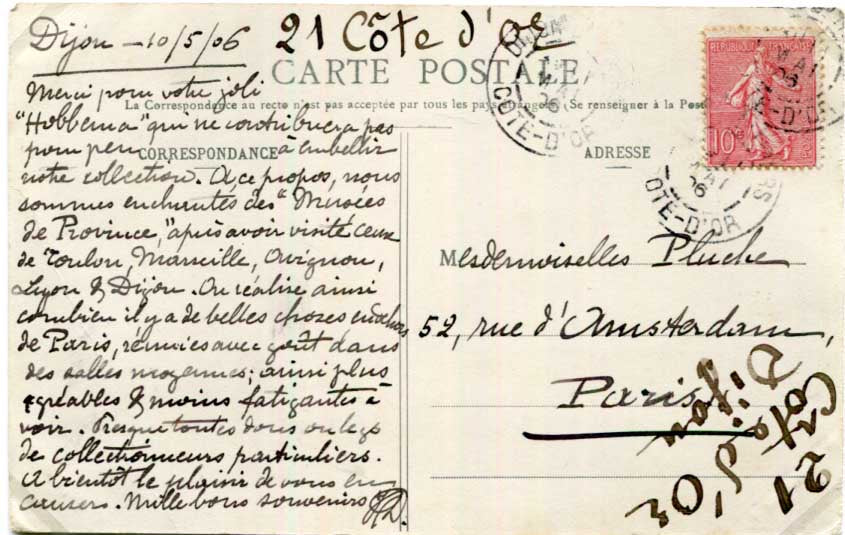 Dijon - 10/5/06
21 Côte d'Or
CARTE POSTALE
La Correspondance au recto n'est pas acceptée par tous les pays étrangers (Se renseigner à la Poste
CORRESPONDANCE
ADRESSE
Merci pour votre joli
"Hobbema" qui ne contribuera pas
pour peu à embellir
notre collection. A ce propos, nous
sommes enchantés des "Musées
de Province," après avoir visité ceux
de Toulon, Marseille, Avignon,
Lyon & Dijon. On réalise ainsi
combien il y a de belles choses en dehors
de Paris, réunies avec goût dans
des salles moyennes; ainsi plus
agréables & moins fatigantes à
voir. Presque toutes dons ou legs
de collectionneurs particuliers.
A bientôt le plaisir de vous en
causer. Mille bons souvenirs
Mesdemoiselles Pluche
52, rue d'Amsterdam,
Paris
Dijon
Cote d'Or
21
REPUBLIQUE FRANÇAISE
10c
DIJON
MAI
06
COTE-D'OR
MAI
06
COTE-D'OR
MAI
06
COTE-D'OR